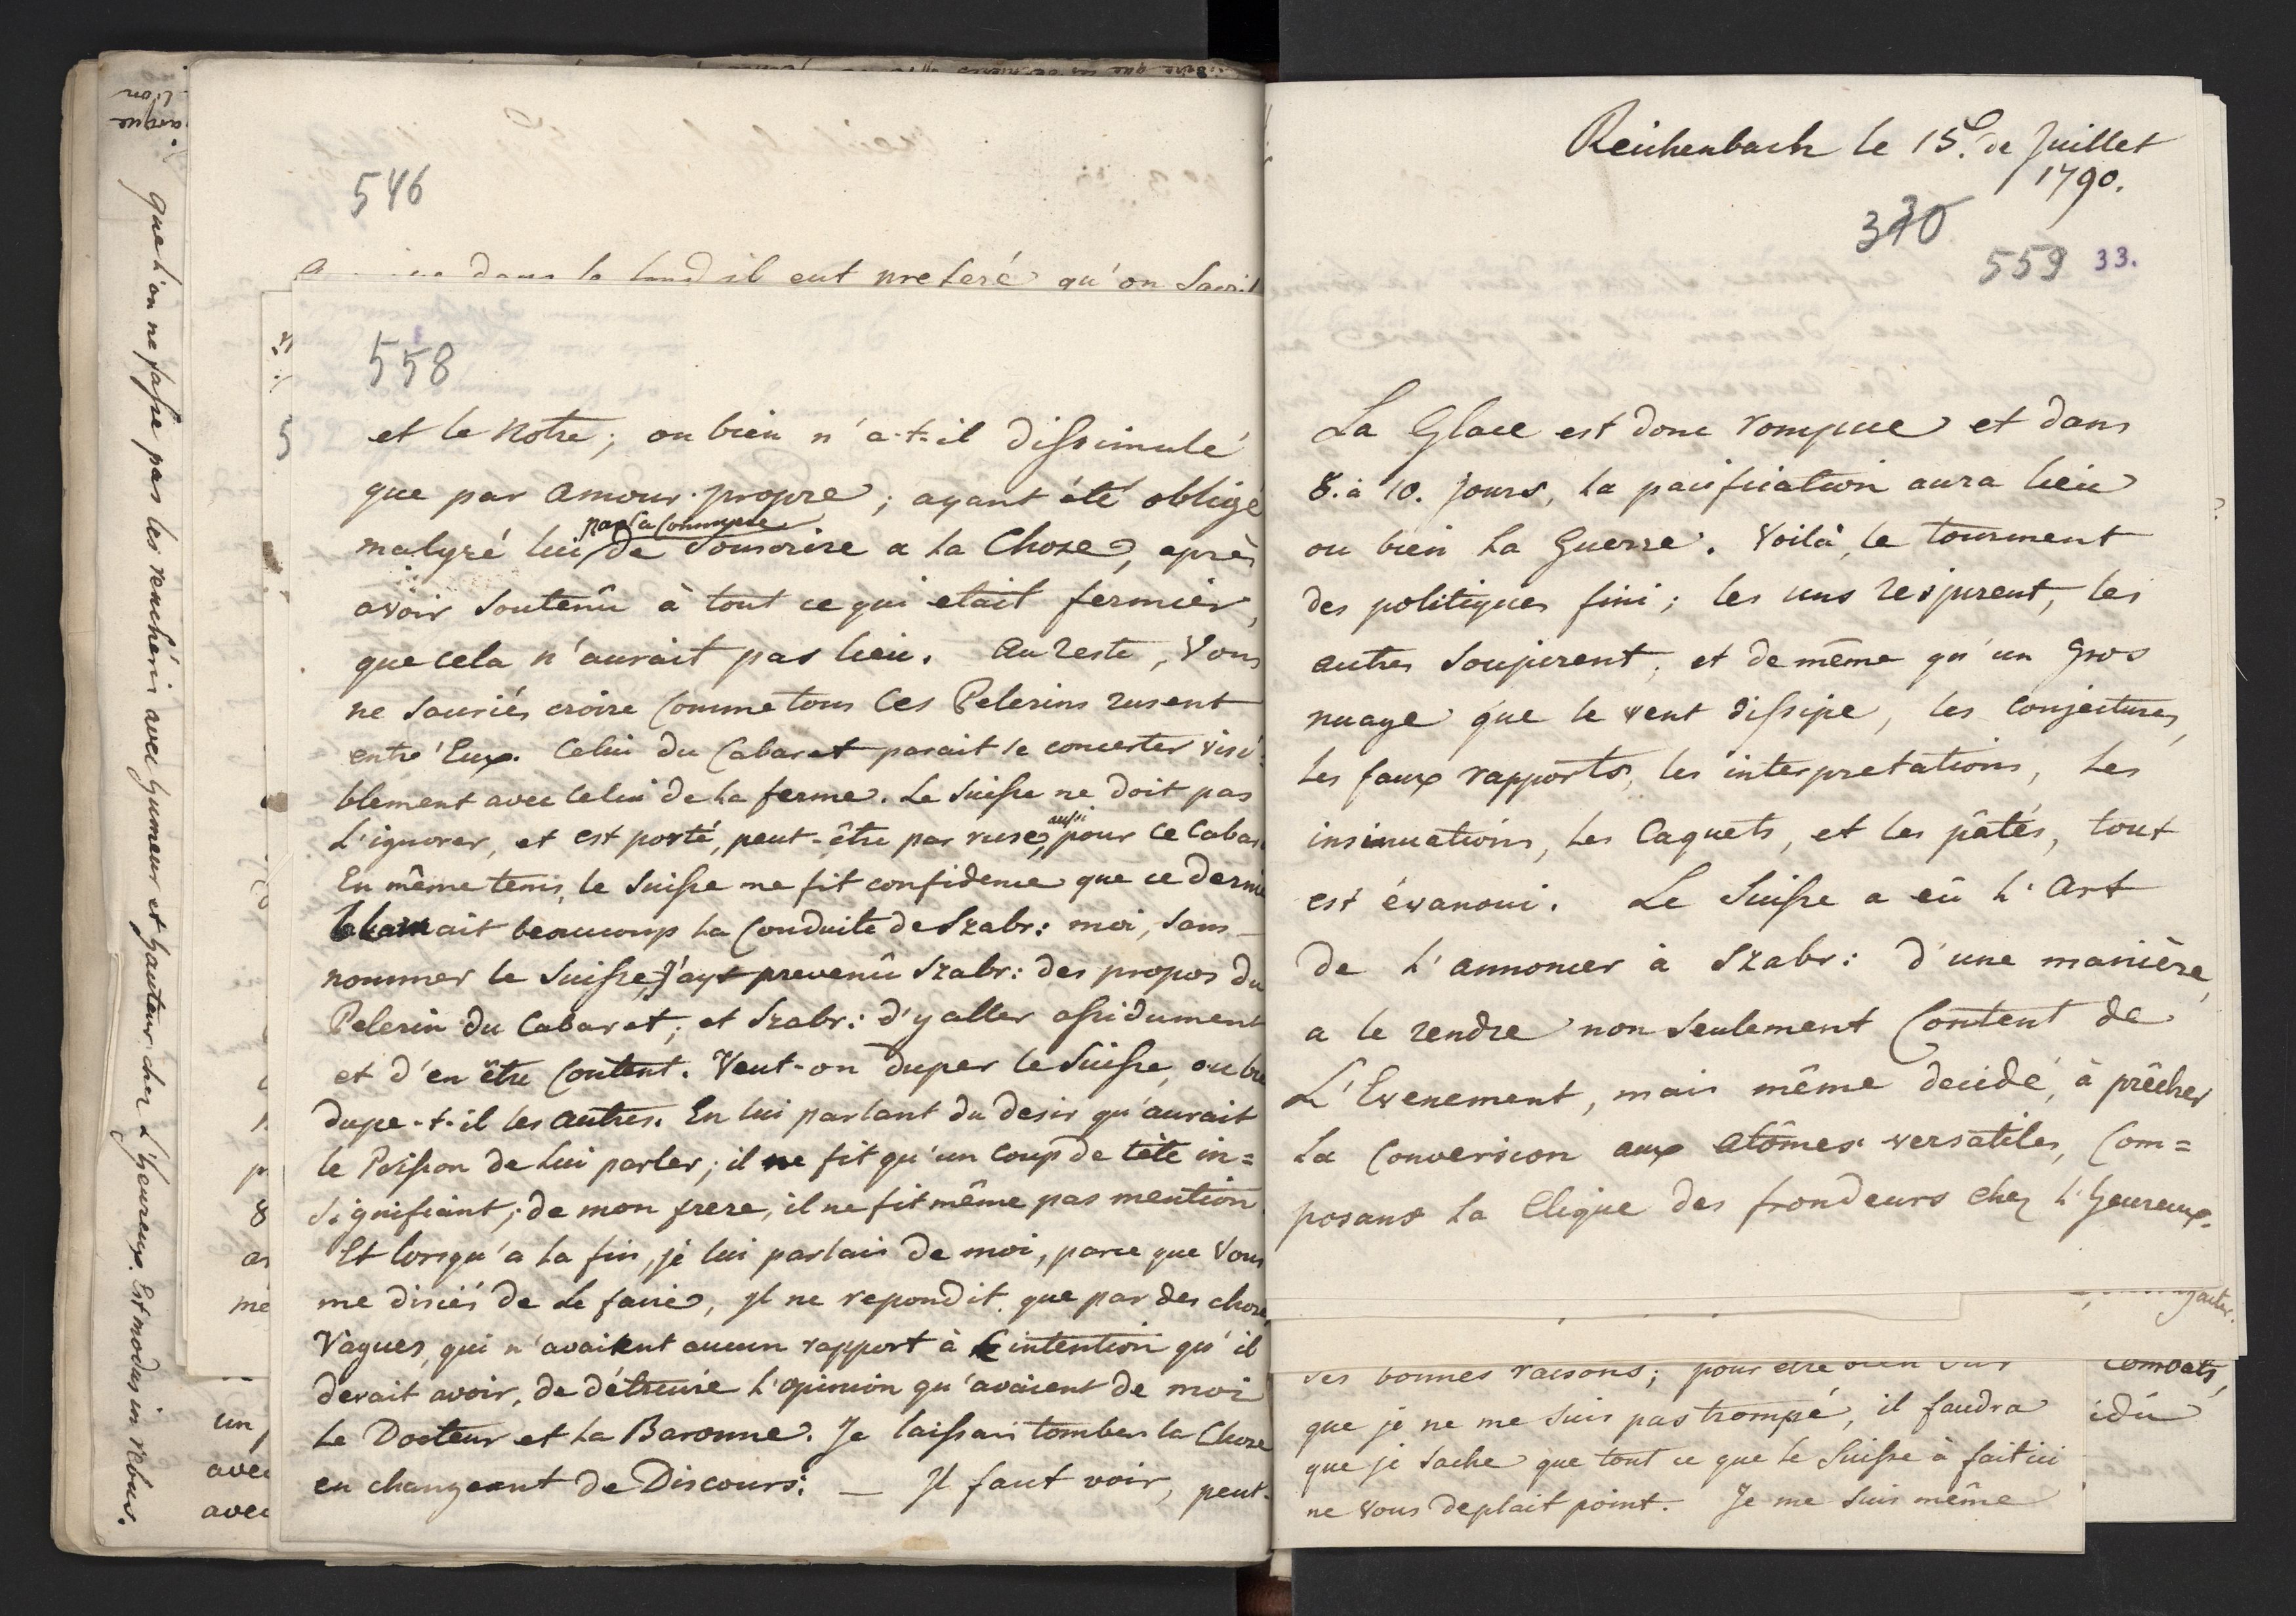 que l'on ne fasse pas les renchéris avec humeur et hauteur chez L'heureux. Est modus in rebus.
546
dans le fond il eut preferé qu'on
558
et le notre; ou bien n'a-t-il dissimulé
que par amour-propre; ayant été obligé
malgré lui de Souscrire a la Chose, après
avoir Soutenû à tout ce qui etait fermier,
que cela n'aurait pas lieu. Au reste, Vous
ne Sauriés croire Comme tous Ces Pelerins rusent
entre'Eux. Celui du Cabaret parait se concerter visi-
blement avec Celui de la ferme. Le Suisse ne doit pas
L'ignorer, et est porté, peut-être par ruse, aussi pour Ce Cabar
En même tems, le Suisse me fit confidence que ce dernie
blamait beaucoup la Conduite de Szabr: moi, Sans
nommer le Suisse, j'ay prevenû Szabr: des propos du
Pelerin du Cabaret; et Szabr: d'y aller assidument
et d'en être Content. Veut-on duper le Suisse, ou bi
dupe-t-il les autres. En lui parlant du desir qu'aurait
le Poisson de Lui parler; il ne fit qu'un Coup de tête in=
Signifiant; de mon frere, il ne fit même pas mention
Et lorsqu'a la fin, je lui parlais de moi, parce que Vous
me disiés de Le faire, Il ne repondit que par des chose
Vagues, qui n'avaient aucun rapport à L'intention qu'il
devait avoir, de détruire L'opinion qu'avaient de moi
Le Docteur et La Baronne. Je laissais tomber la Chose
en changeant de Discours: — Il faut voir, peut-
un
avec
avec
Reichenbach le 15.e de Juillet
1790.
370
559 33.
La Glace est donc rompue et dans
8. à 10. jours, la pacification aura lieu
ou bien La Guerre. Voilà, le tourment
des politiques fini; les uns respirent, les
autres Soupirent, et de même qu'un gros
nuage que le vent dissipe, les Conjectures,
Les faux rapports, les interpretations, Les
insinuations, Les Caquets, et les pâtés, tout
est évanoui. Le Suisse a eû L'Art
de L'annoncer à Szabr: d'une manière,
a le rendre non Seulement Content de
L'Evenement, mais même decidé, à prêcher
La Conversion aux atômes versatiles, Com=
posans La Clique des frondeurs Chez L'heureux.
Ses bonnes raisons; pour etre bien Sur
que je ne me Suis pas trompé, il faudra
que je Sache que tout ce que le Suisse à fait ici
ne Vous deplait point. Je me Suis même
Combats,